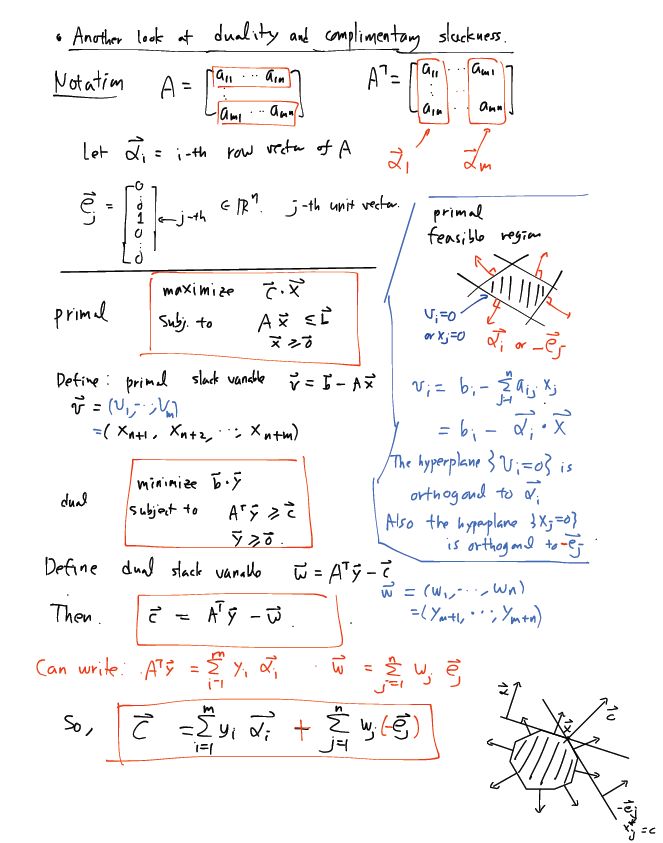 • Another look at duality and complimentary slackness.
Notation A = [a11 ··· a1n ⋮ am1 ··· amn] Aᵀ = [a11 ··· am1 ⋮ a1n ··· amn]
Let α⃗i = i-th row vector of A
α⃗1 α⃗m
e⃗j = [0 ⋮ 0 1 0 ⋮ 0] ← j-th ∈ ℝⁿ. j-th unit vector.
primal
feasible region
vi=0
or xj=0
α⃗i or -e⃗j
primal
maximize c⃗·x⃗
Subj. to A x⃗ ≤ b⃗
x⃗ ≥ 0⃗
Define: primal slack variable v⃗ = b⃗ - A x⃗
v⃗ = (v1, ···, vm)
= (xn+1, xn+2, ···, xn+m)
vi = bi - Σ_{j=1}^{n} aij xj
= bi - α⃗i · x⃗
The hyperplane {vi=0} is
orthogonal to α⃗i
Also the hyperplane {xj=0}
is orthogonal to -e⃗j
dual
minimize b⃗·y⃗
subject to Aᵀy⃗ ≥ c⃗
y⃗ ≥ 0⃗.
Define dual slack variable w⃗ = Aᵀy⃗ - c⃗
w⃗ = (w1, ···, wn)
= (ym+1, ···, ym+n)
Then. c⃗ = Aᵀy⃗ - w⃗.
Can write: Aᵀy⃗ = Σ_{i=1}^{m} yi α⃗i · w⃗ = Σ_{j=1}^{n} wj e⃗j
So, c⃗ = Σ_{i=1}^{m} yi α⃗i + Σ_{j=1}^{n} wj (-e⃗j)
α⃗
x⃗
c⃗
-e⃗j